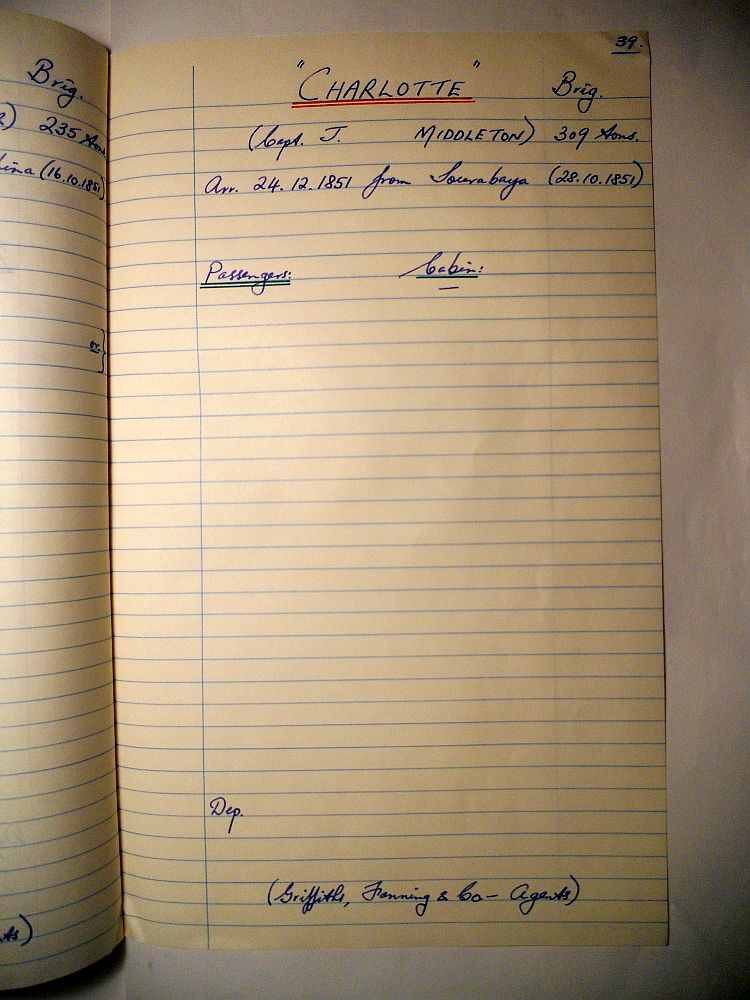 Brig.
235 tons
(16.10.1851)
39.
"CHARLOTTE" Brig.
(Capt. J. MIDDLETON) 309 tons.
Arr. 24.12.1851 from Sourabaya (28.10.1851)
Passengers: Cabin:
—
Dep.
(Griffiths, Fanning & Co - Agents)